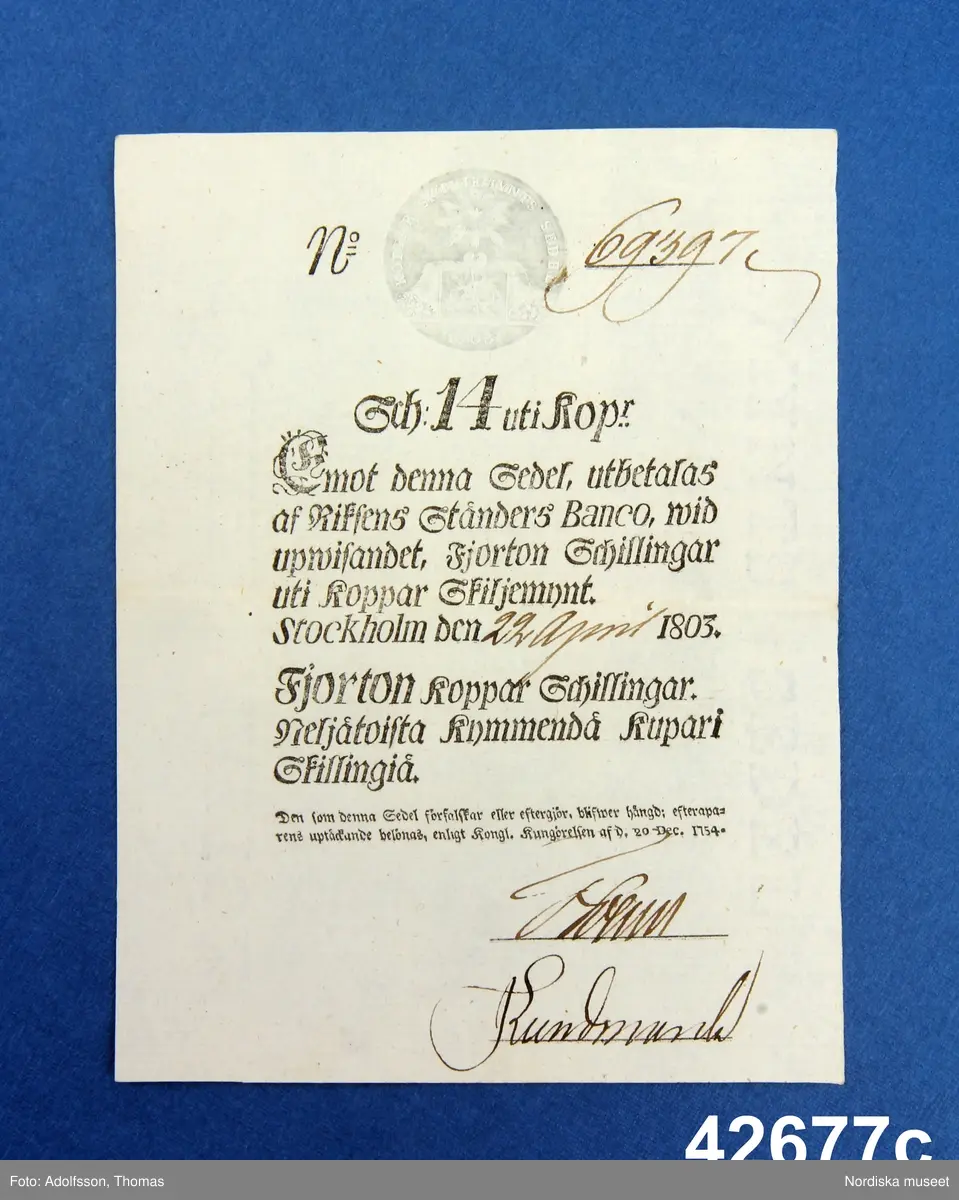 No 69397
Sch: 14 uti Kopr.
Emot denna Sedel, utbetalas
af Riksens Ständers Banco, wid
upwisandet, Fjorton Schillingar
uti Koppar Skiljemynt.
Stockholm den 22 April 1803.
Fjorton Koppar Schillingar.
Neljätoista Kymmendä Kupari
Skillingiä.
Den som denna Sedel förfalskar eller eftergör, blifwer hängd; efterapa-
rens uptäckande belönas, enligt Kongl. Kungörelsen af d. 20 Dec. 1754.
42677c
Foto: Adolfsson, Thomas
Nordiska museet